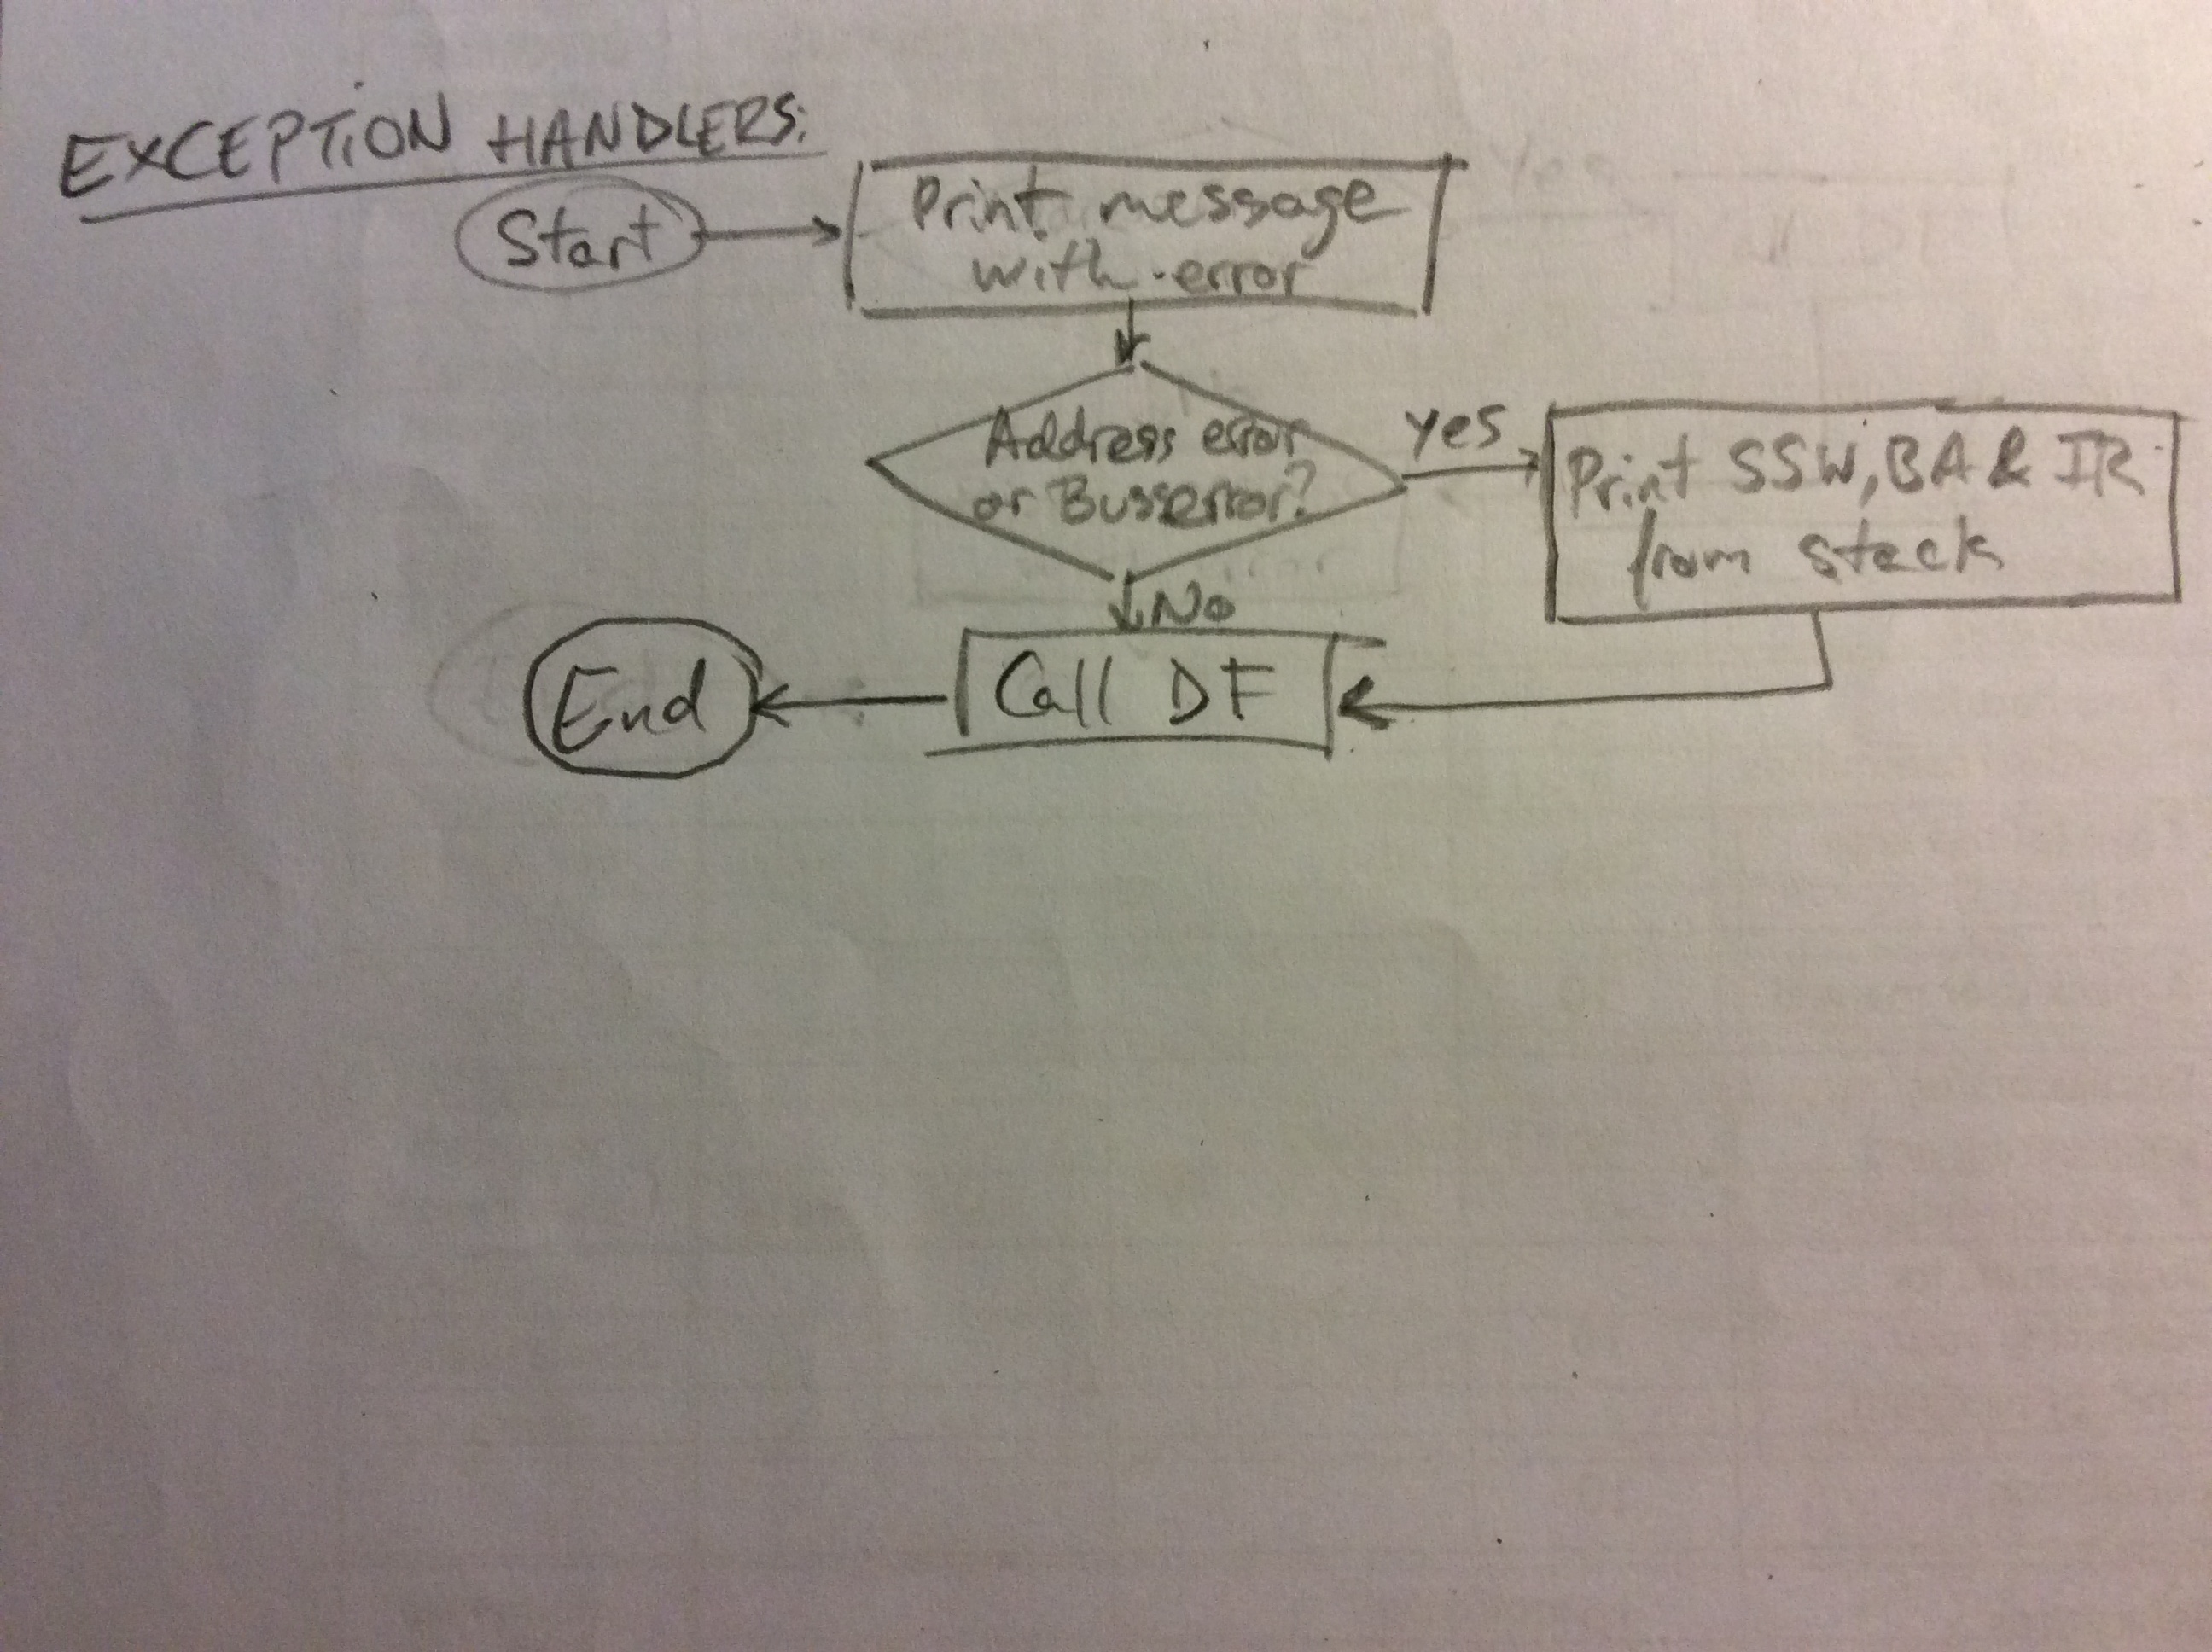 EXCEPTION HANDLERS:
Start
Print message
with error
Address error
or Busserror?
yes
Print SSW, BA & IR
from stack
No
Call DF
End